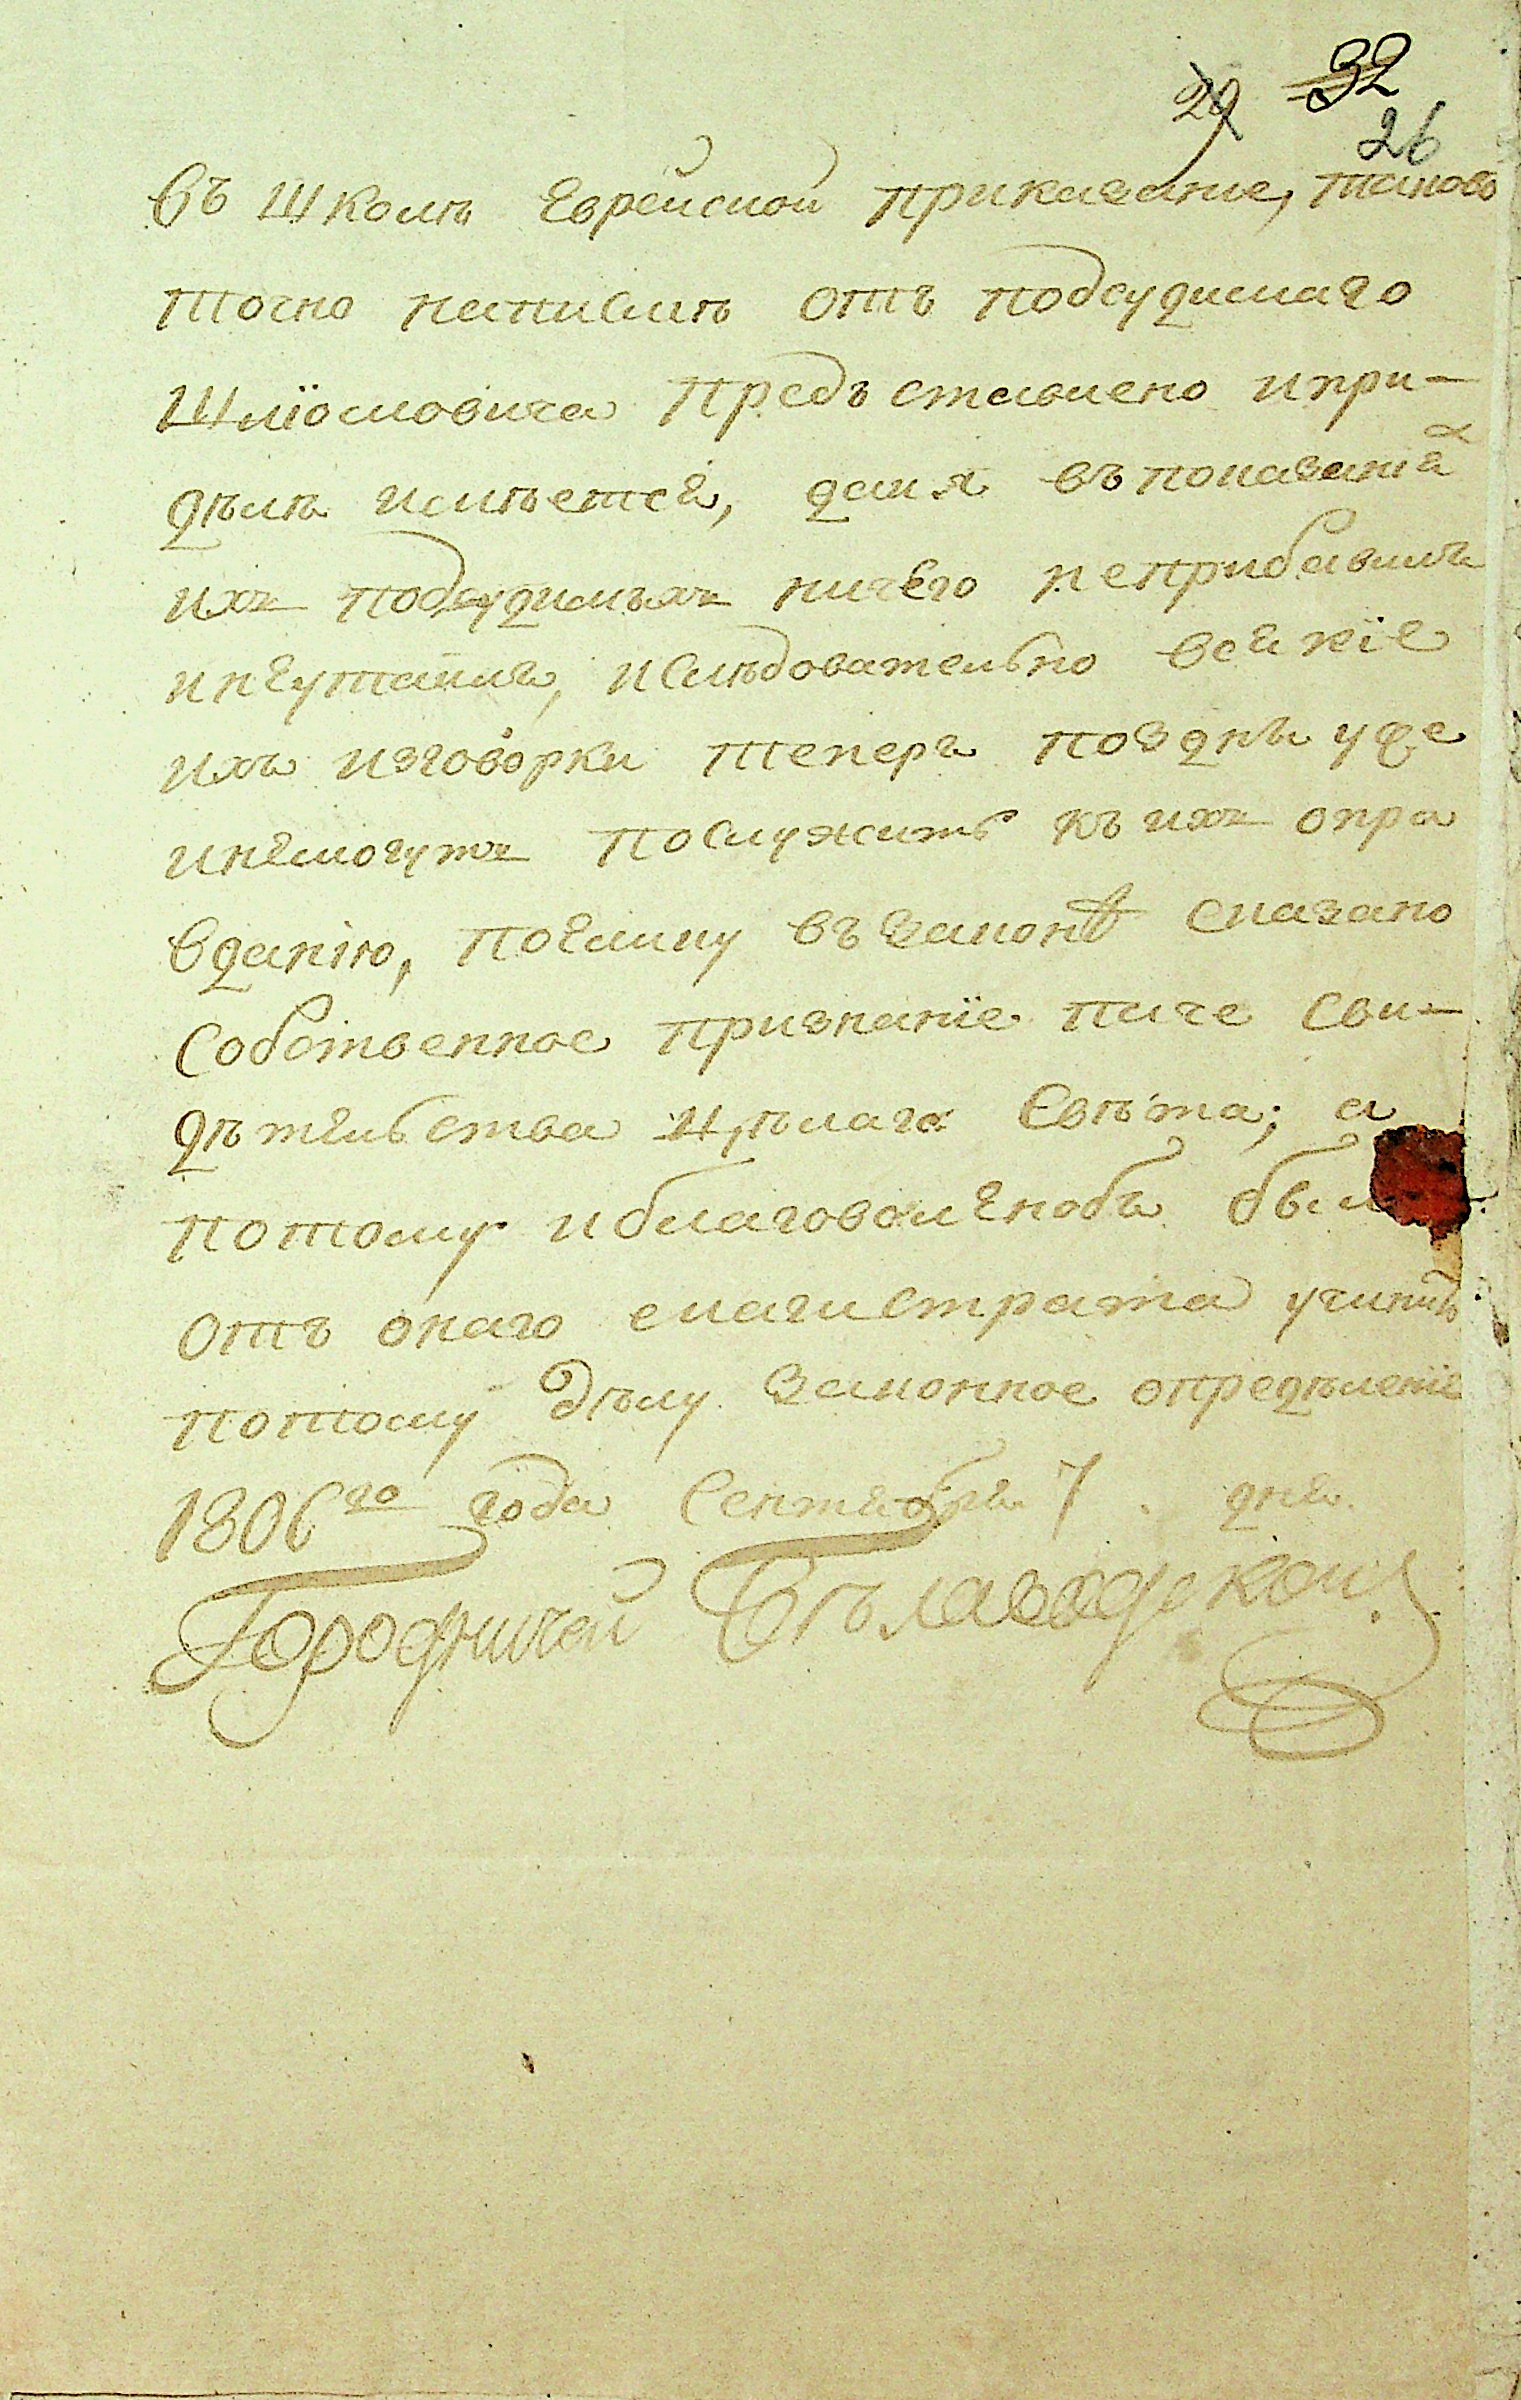 29 32
26
въ школѣ Еврейской приказание, таково
точно написмѣ отъ подсудимаго
Шліомовича Предъставлено ипри-
дѣлѣ имѣется, да и я въ показания
ихъ подсудимыхъ ничего неприбавилъ
инеутаилъ, иследовательно всякіе
ихъ изговорки теперъ позднѣ уже
инемогутъ послужить къ ихъ опра
вданію, почему въ законѣ сказано
Собственное признаніе паче сви-
дѣтельства цѣлаго свѣта; а
потому иблаговоленобъ было
отъ онаго магистрата учинить
потому Дѣлу Законное определеніе
1806го года Сентября 7 дня
Городничей